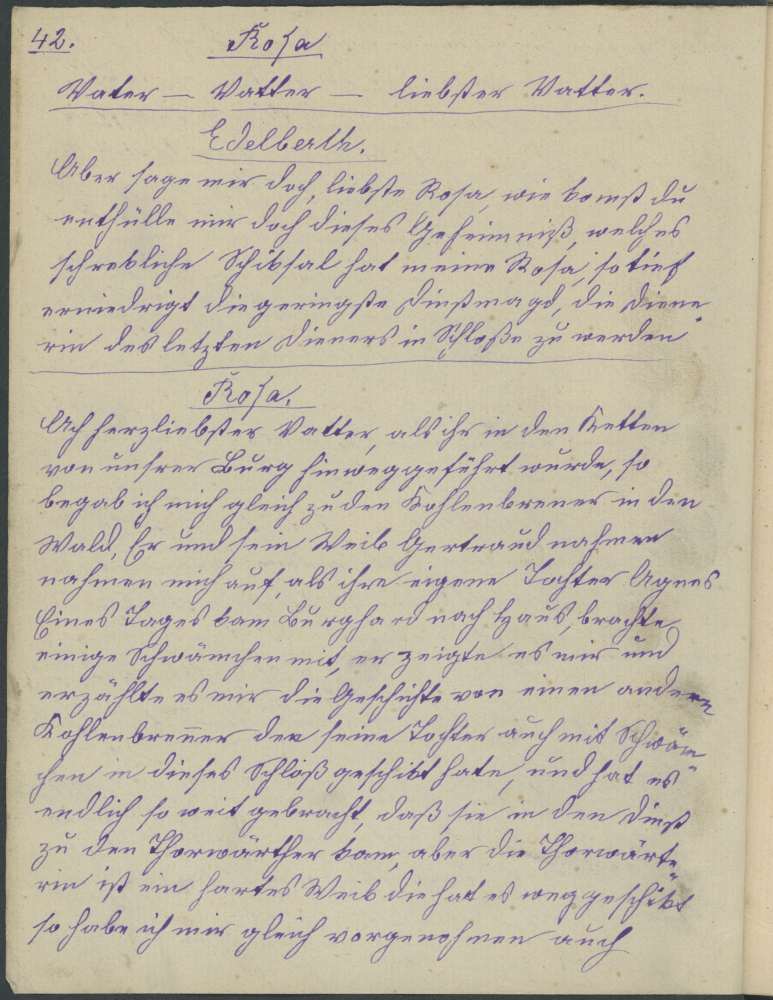 42.
Rosa
Vater — Vatter — liebster Vatter.
Edelberth.
Aber sage mir doch, liebste Rosa, wie komst du
enthülle mir doch dieses Geheimniß, welches
schrekliche Schiksal hat meine Rosa, so tief
erniedrigt die geringste Dinstmagd, die Diene
rin des letzten Dieners in Schloße zu werden
Rosa.
Ach herzliebster Vatter, als ihr in den Ketten
von unsrer Burg hinweggeführt wurde, so
begab ich mich gleich zu den Kohlenbrener in den
Wald, Er und sein Weib Gertraud nahmen
nahmen mich auf, als ihre eigene Tochter Agnes
Eines Tages kam Burghard nach Haus, brachte
einige Schwämchen mit, er zeigte es mir und
erzählte es mir die Geschichte von einen andern
Kohlenbrenner der seine Tochter auch mit Schwäm
chen in dieses Schloß geschikt hate, und hat es
endlich so weit gebracht, daß sie in den Dinst
zu den Thorwärther kam, aber die Thorwärte
rin ist ein hartes Weib die hat es weg geschikt
so habe ich mir gleich vorgenohmen auch